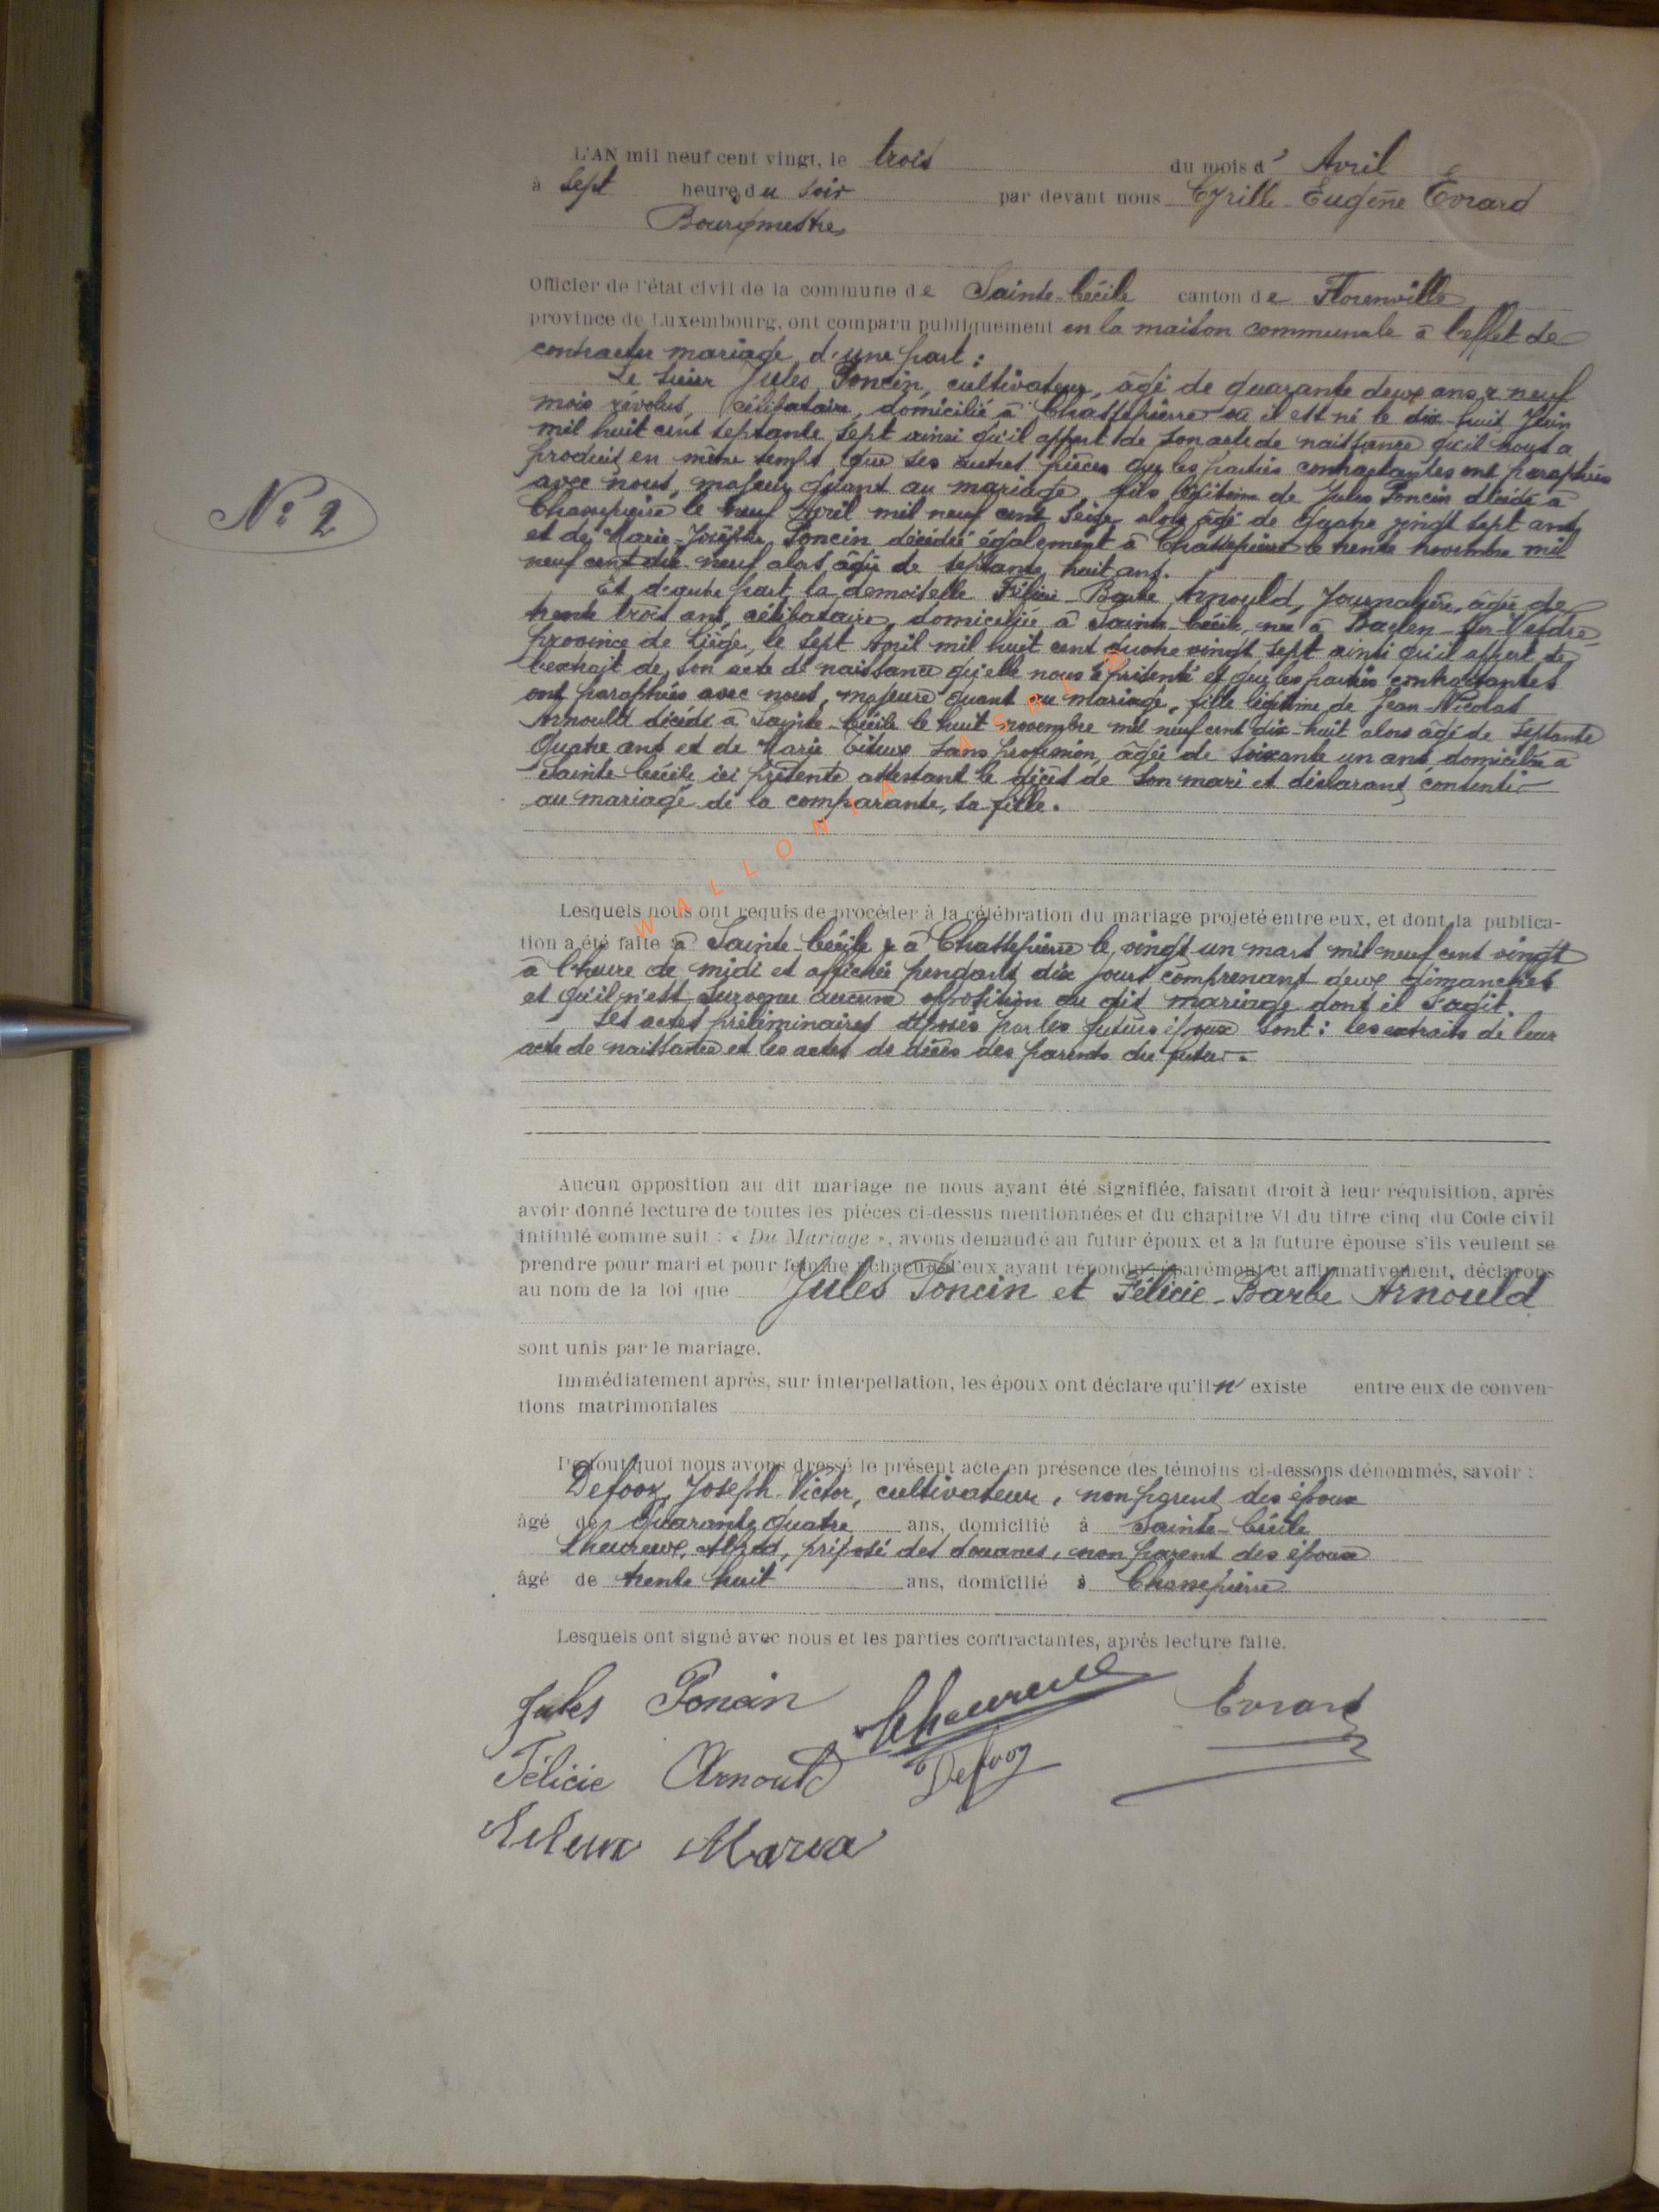 L'AN mil neuf cent vingt, le trois du mois d' Avril
à Sept heures du soir par devant nous Cyrille-Eugène Evrard
Bourgmestre
Officier de l'état civil de la commune de Sainte-Cécile canton de Florenville
province de Luxembourg, ont comparu publiquement en la maison communale à l'effet de
contracter mariage, d'une part :
Le sieur Jules Poncin, cultivateur, âgé de quarante deux ans & neuf
mois révolus, célibataire, domicilié à Chassepierre où il est né le dix-huit Juin
mil huit cent septante sept ainsi qu'il appert de son acte de naissance qu'il nous a
produit en même temps que ses autres pièces que les parties contractantes ont paraphées
avec nous, majeur quant au mariage, fils légitime de Jules Poncin décédé à
Chassepierre le neuf Avril mil neuf cent Seize alors âgé de quatre vingt sept ans
et de Marie-Josèphe Poncin décédée également à Chassepierre le trente novembre mil
neuf cent dix-neuf alors âgée de septante huit ans.
Et d'autre part, la demoiselle Félicie-Barbe Arnould, Journalière, âgée de
trente trois ans, célibataire, domiciliée à Sainte-Cécile, née à Baelen-sur-Vesdre
province de Liège, le sept Avril mil huit cent quatre vingt sept ainsi qu'il appert de
l'extrait de son acte de naissance qu'elle nous a présenté et que les parties contractantes
ont paraphées avec nous, majeure quant au mariage, fille légitime de Jean-Nicolas
Arnould décédé à Sainte-Cécile le huit novembre mil neuf cent dix-huit alors âgé de septante
quatre ans et de Marie sans profession, âgée de soixante un ans domiciliée à
Sainte-Cécile ici présente attestant le décès de son mari et déclarant consentir
au mariage de la comparante, sa fille.
WALLONIA ASBL
Lesquels nous ont requis de procéder à la célébration du mariage projeté entre eux, et dont la publica-
tion a été faite à Sainte-Cécile & à Chassepierre le vingt un mars mil neuf cent vingt
à l'heure de midi et affichée pendant dix jours comprenant deux dimanches
et qu'il n'est survenu aucune opposition au dit mariage dont il s'agit.
Les actes préliminaires déposés par les futurs époux sont : les extraits de leur
acte de naissance et les actes de décès des parents du futur.
Aucun opposition au dit mariage ne nous ayant été signifiée, faisant droit à leur réquisition, après
avoir donné lecture de toutes les pièces ci-dessus mentionnées et du chapitre VI du titre cinq du Code civil
intitulé comme suit : « Du Mariage », avons demandé au futur époux et à la future épouse s'ils veulent se
prendre pour mari et pour femme ; chacun d'eux ayant répondu séparément et affirmativement, déclarons
au nom de la loi que Jules Poncin et Félicie-Barbe Arnould
sont unis par le mariage.
Immédiatement après, sur interpellation, les époux ont déclaré qu'il n' existe entre eux de conven-
tions matrimoniales
De tout quoi nous avons dressé le présent acte en présence des témoins ci-dessons dénommés, savoir :
Defooz, Joseph-Victor, cultivateur, non parent des époux
âgé de quarante quatre ans, domicilié à Sainte-Cécile
Lheureux, Alfred, préposé des douanes, non parent des époux
âgé de trente huit ans, domicilié à Chassepierre
Lesquels ont signé avec nous et les parties contractantes, après lecture faite.
Jules Poncin Lheureux Evrard
Félicie Arnould Defooz
Maria
N° 2